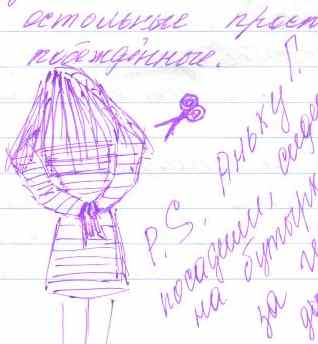 остольные прост
побеждённые.
P.S. Аньку Г.
посадили, сиде
на бутырк
за